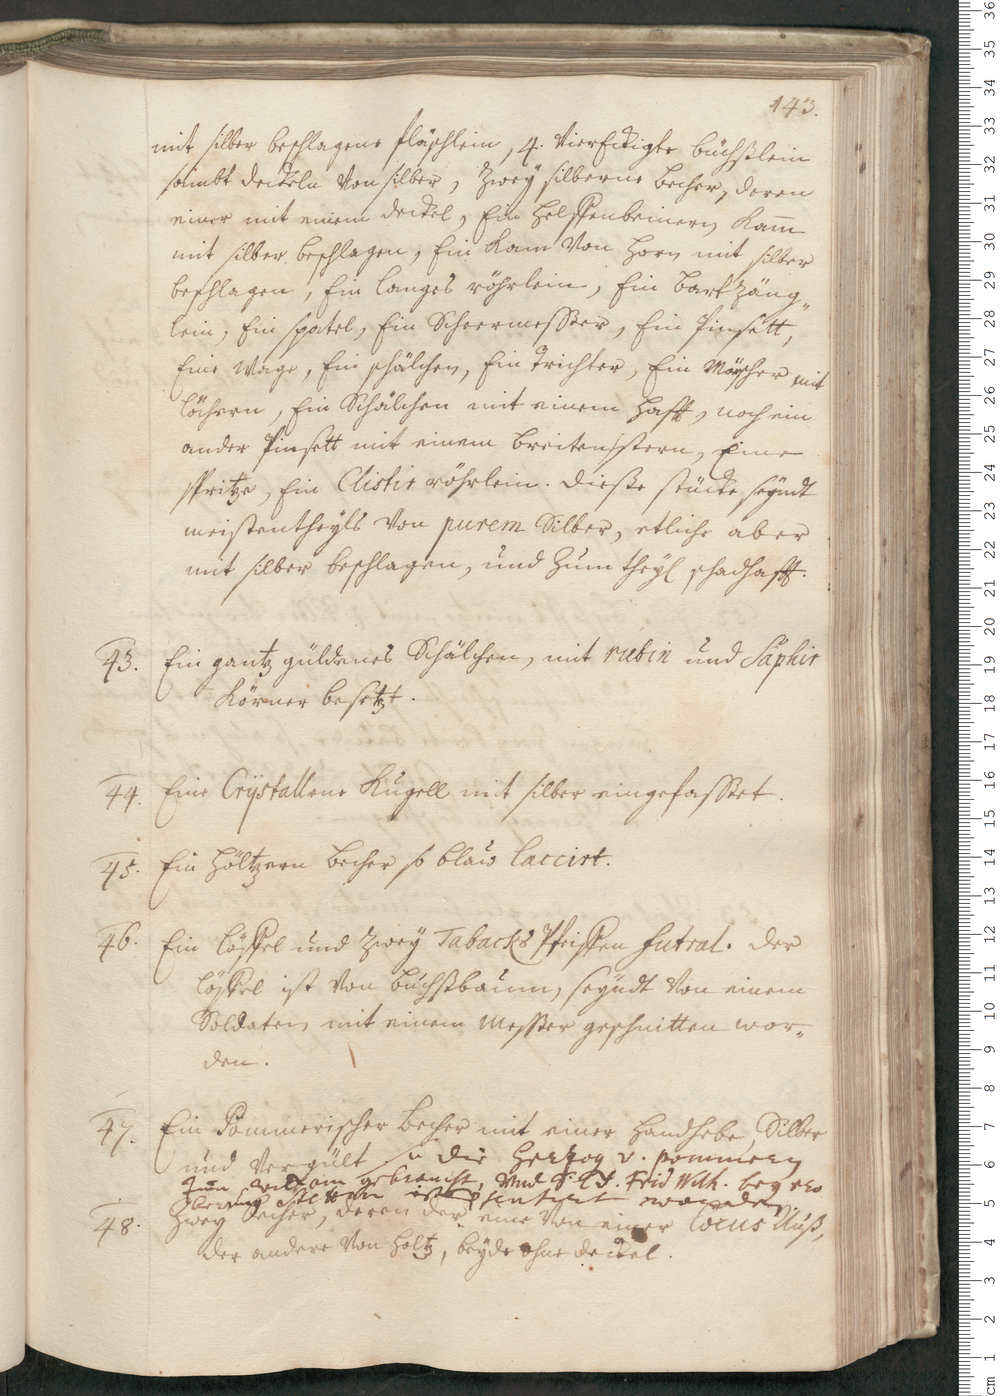 143.
mit silber beschlagene fläschlein, 4. Viereckigte büchßlein
sambt deckeln Von silber, Zwey silberne becher, deren
einer mit einem deckel, Ein helffenbeinern Kam̄
mit silber beschlagen, Ein Kam Von Horn mit silber
beschlagen, Ein langes röhrlein, Ein bart Zäng-
lein, Ein spatel, Ein Scheermesser, Ein Pinsett,
Eine Wage, Ein schälchen, Ein Trichter, Ein Mösher mit
löchern, Ein Schälchen mit einem hafft, noch ein
ander Pinsett mit einem breiten stern, Eine
spritze, Ein Clistir röhrlein. Dieße stücke seyndt
meistentheyls Von purem Silber, etliche aber
mit silber beschlagen, und Zum theyl schadhafft.
43. Ein gantz güldenes Schälchen, mit rubin und Saphir
Körner besetzt.
44. Eine Crystallene Kugell mit silber eingefasset.
45. Ein höltzern becher so blaw laccirt.
46. Ein löffel und Zwey Tabacks Pfeiffen futral. der
löffel ist Von buchßbaum, seyndt Von einem
Soldaten mit einem Messer geschnitten wor-
den.
47. Ein Pommerischer becher mit einer Handhebe, Silber
und Vergült so die Hertzog v. pommern
Zum gebraucht, Vnd Frid Wilh. bey ero
berung Stettin ist worden
48. Zwey becher, deren der eine Von einer Cocus Nuß,
der andere Von holtz, beyde ohne deckel.
cm 1 2 3 4 5 6 7 8 9 10 11 12 13 14 15 16 17 18 19 20 21 22 23 24 25 26 27 28 29 30 31 32 33 34 35 36